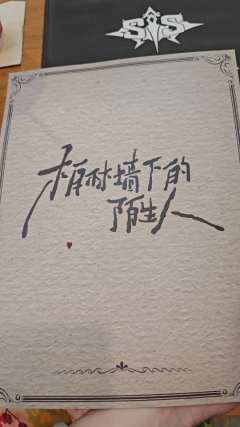 SIS
柏林墙下的
陌生人